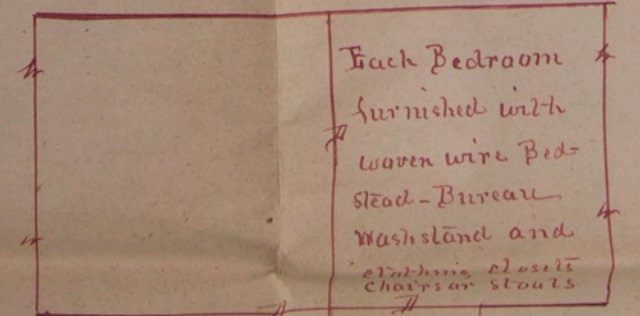 Each Bedroom
furnished with
woven wire Bed-
stead - Bureau
Washstand and
clothing closets
chairs or stools